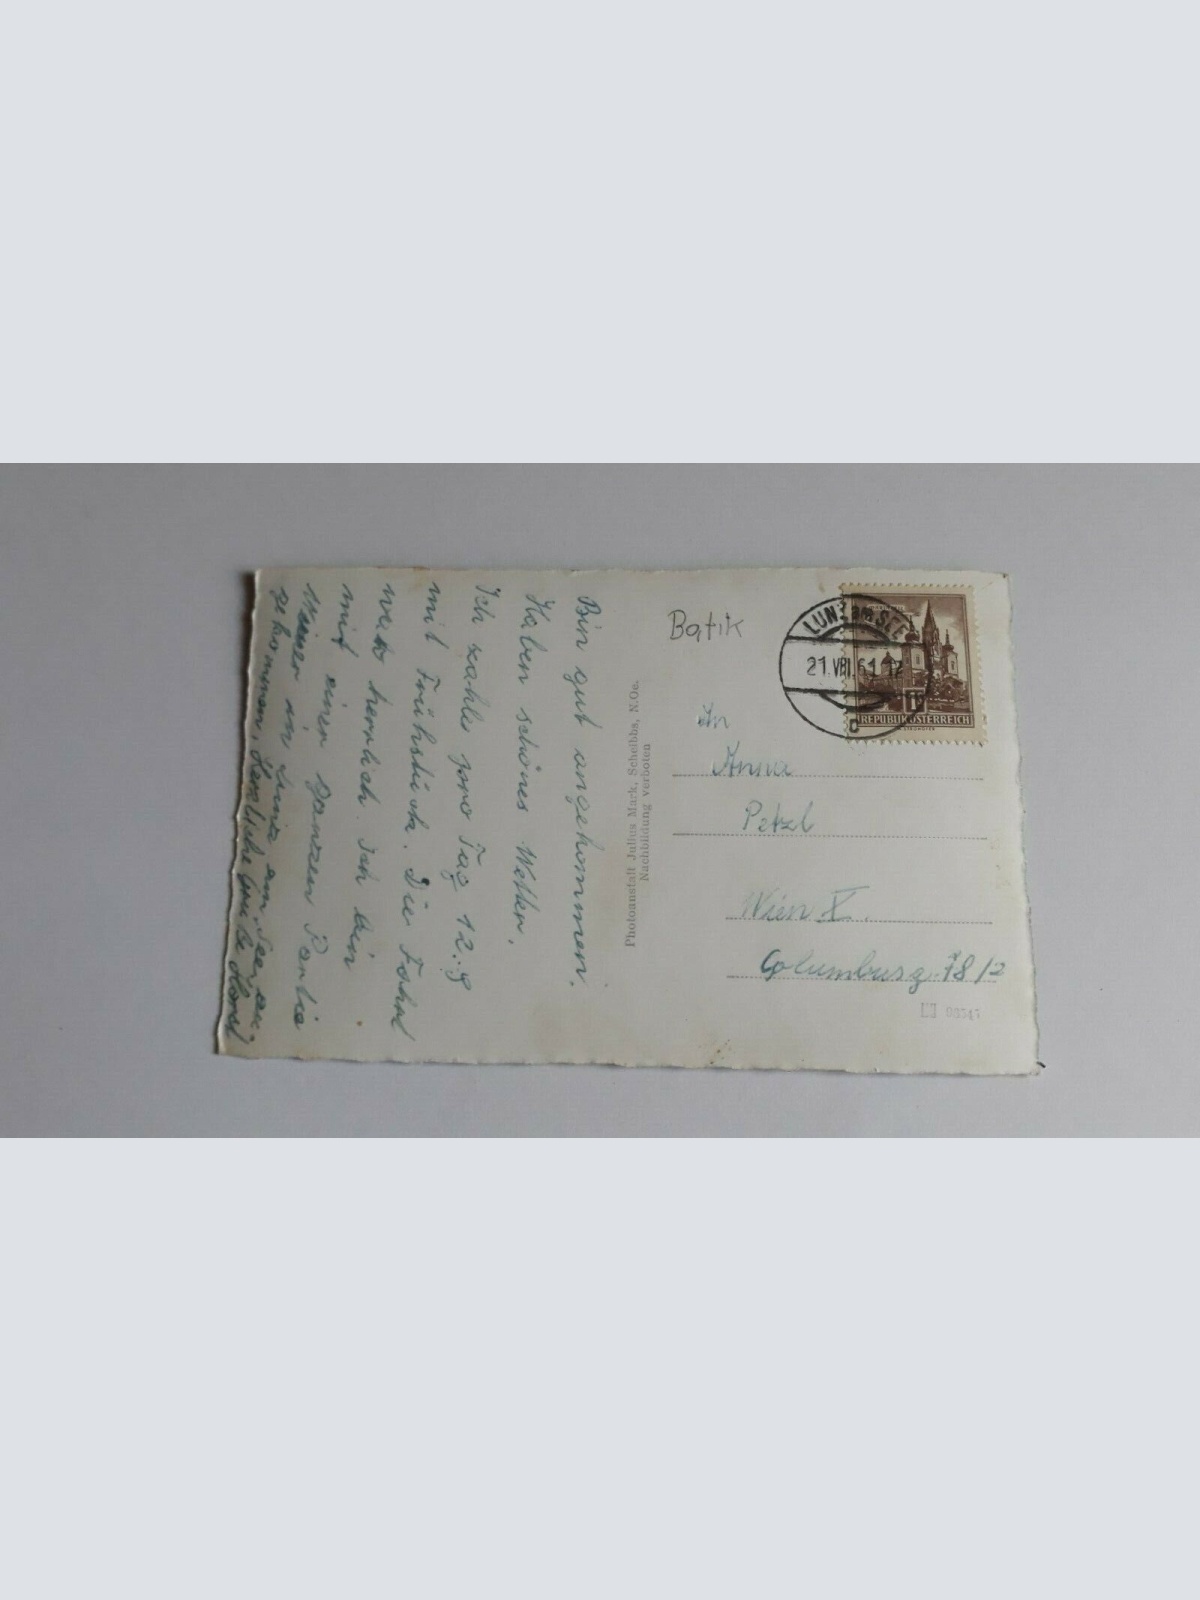 Bin gut angekommen.
Haben schönes Wetter.
Ich zahle pro Tag 12.-S
mit Frühstück. Die Fahrt
war herrlich. Ich bin
mit einer ganzen Partie
Wiener in Lunz am See an-
gekommen. Herzliche Grüße Horst
Photoanstalt Julius Mark, Scheibbs, N.Oe.
Nachbildung verboten
Batik
LUNZ am SEE
21.VIII.61 12
c
REPUBLIK ÖSTERREICH
An
Anna
Petzl
Wien X.
Columbusg. 78/2